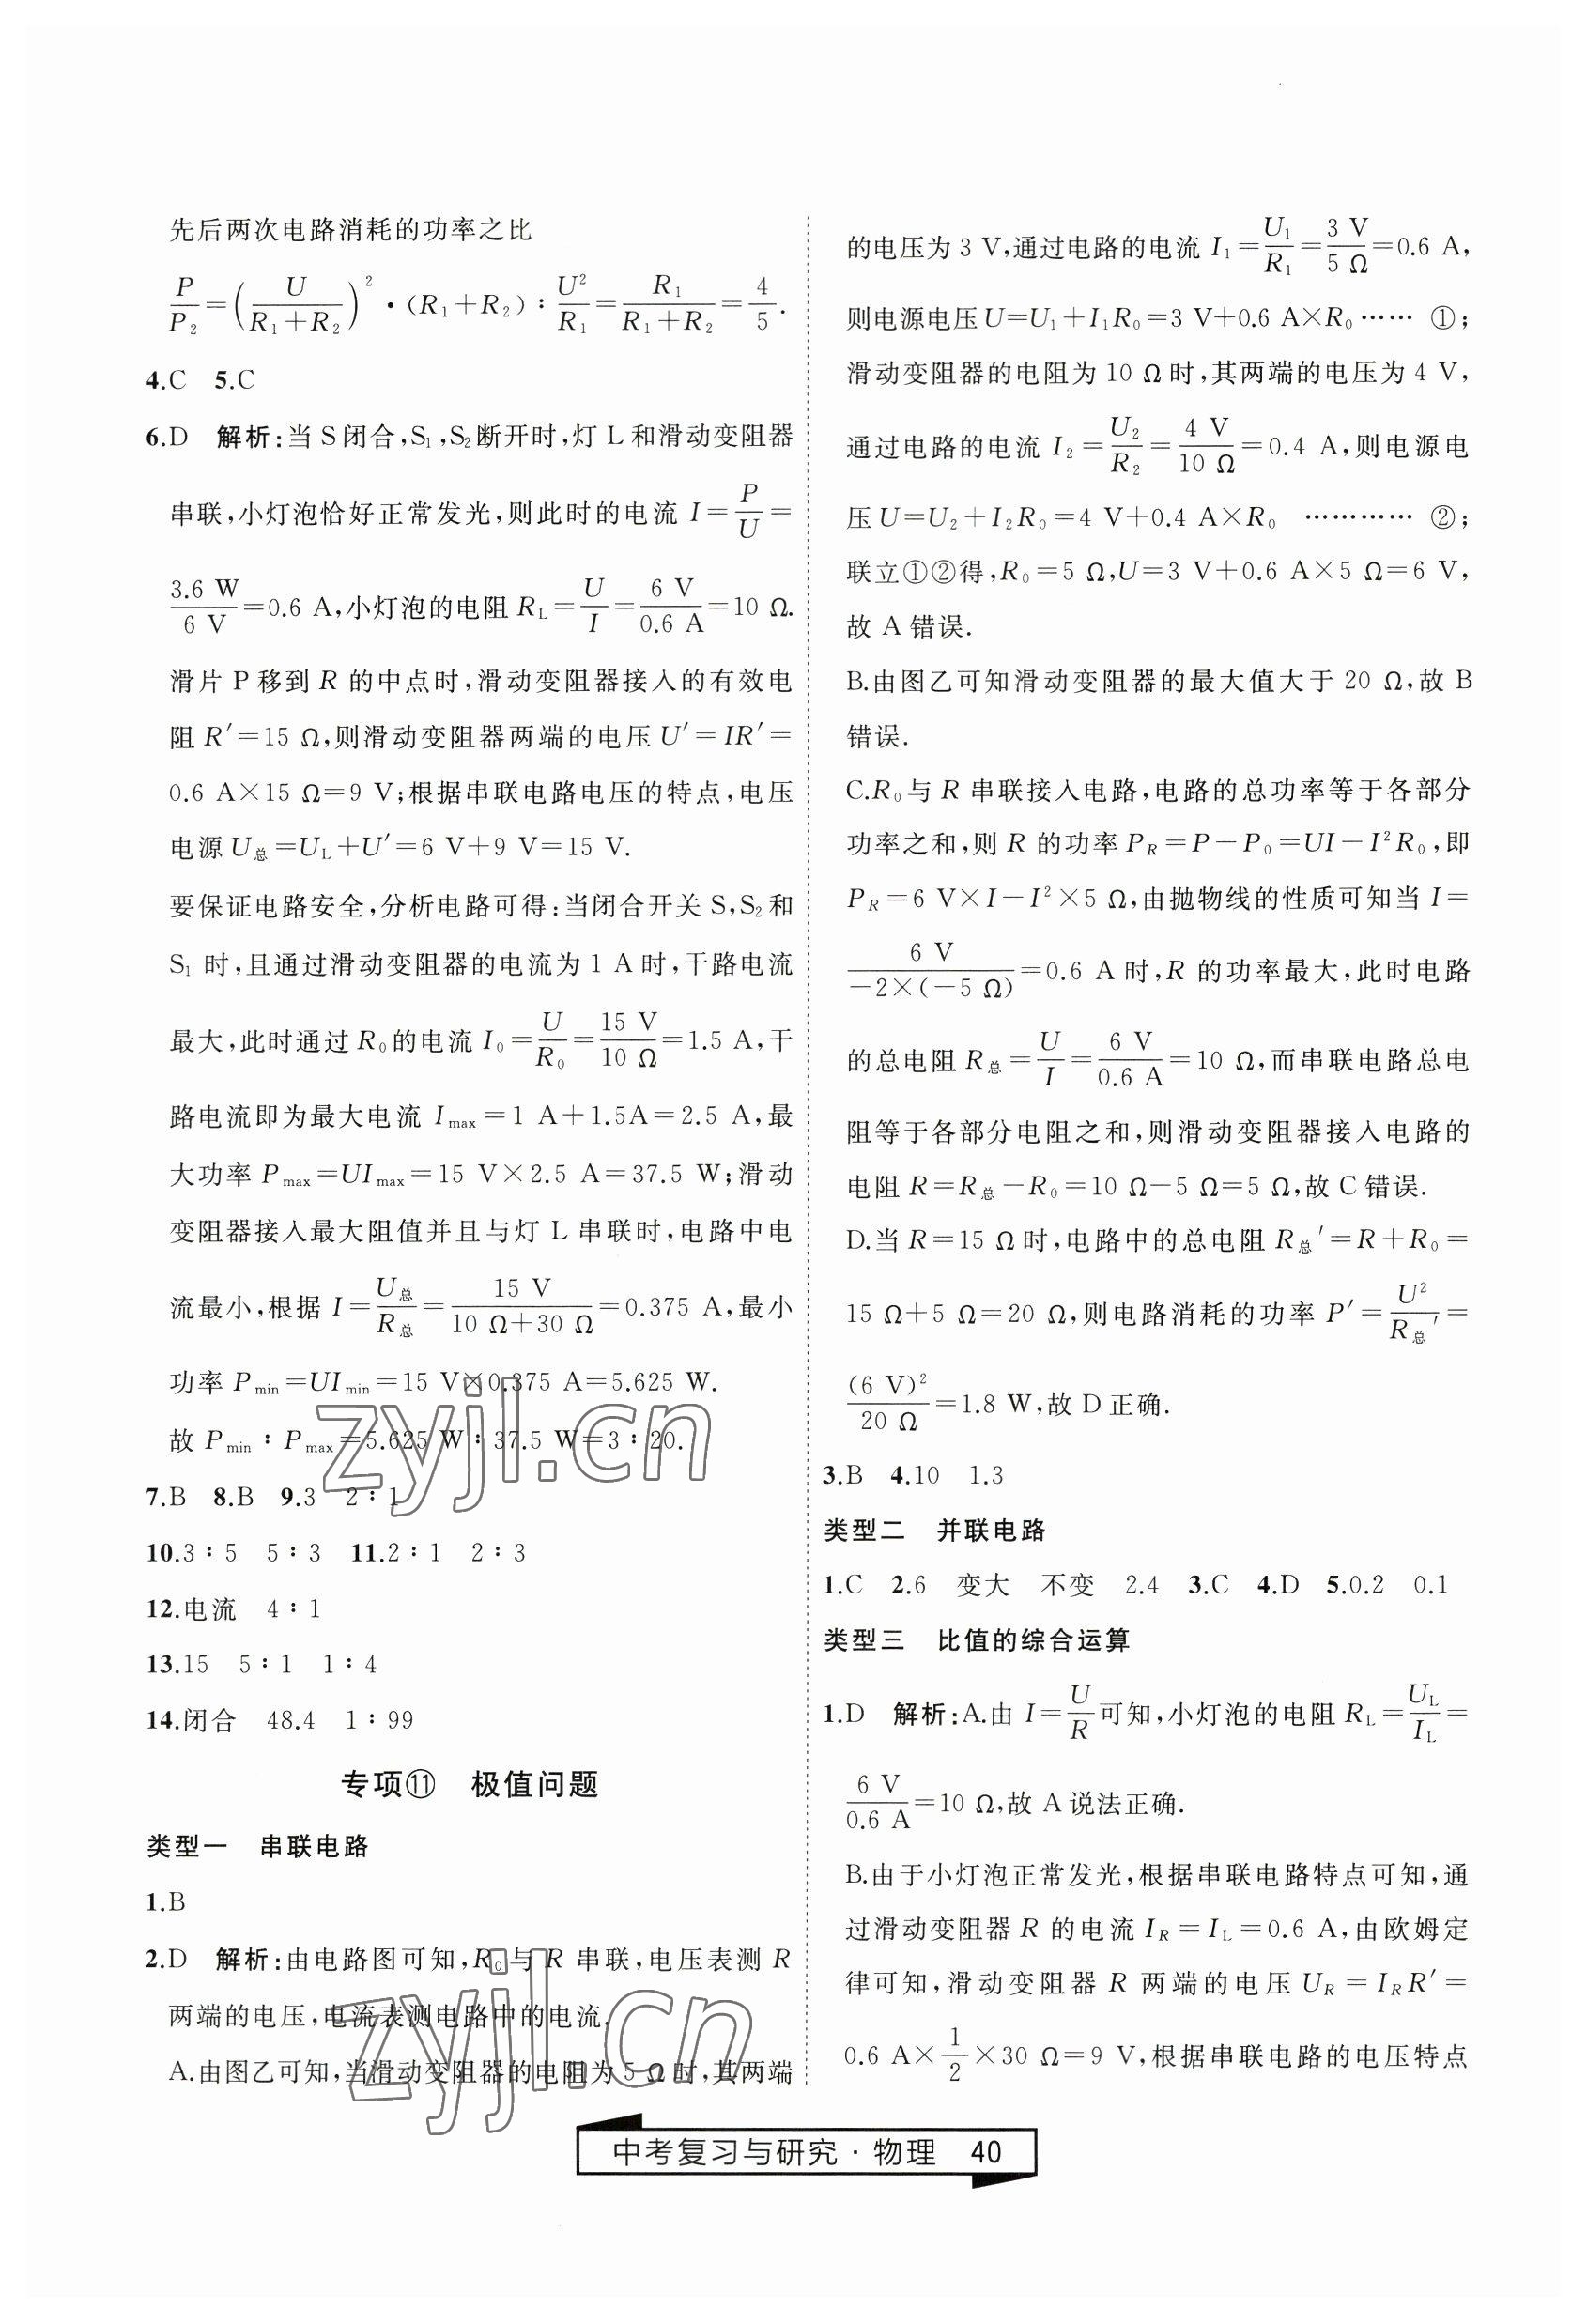 先后两次电路消耗的功率之比
P/P₂=(U/(R₁+R₂))²·(R₁+R₂)∶U²/R₁=R₁/(R₁+R₂)=4/5.
4.C 5.C
6.D 解析:当S闭合,S₁,S₂断开时,灯L和滑动变阻器
串联,小灯泡恰好正常发光,则此时的电流I=P/U=
3.6 W/6 V=0.6 A,小灯泡的电阻R_L=U/I=6 V/0.6 A=10 Ω.
滑片P移到R的中点时,滑动变阻器接入的有效电
阻R′=15 Ω,则滑动变阻器两端的电压U′=IR′=
0.6 A×15 Ω=9 V;根据串联电路电压的特点,电压
电源U总=U_L+U′=6 V+9 V=15 V.
要保证电路安全,分析电路可得:当闭合开关S,S₂和
S₁时,且通过滑动变阻器的电流为1 A时,干路电流
最大,此时通过R₀的电流I₀=U/R₀=15 V/10 Ω=1.5 A,干
路电流即为最大电流I_max=1 A+1.5A=2.5 A,最
大功率P_max=UI_max=15 V×2.5 A=37.5 W;滑动
变阻器接入最大阻值并且与灯L串联时,电路中电
流最小,根据I=U总/R总=15 V/(10 Ω+30 Ω)=0.375 A,最小
功率P_min=UI_min=15 V×0.375 A=5.625 W.
故P_min∶P_max=5.625 W∶37.5 W=3∶20.
7.B 8.B 9.3 2∶1
10.3∶5 5∶3 11.2∶1 2∶3
12.电流 4∶1
13.15 5∶1 1∶4
14.闭合 48.4 1∶99
专项⑪ 极值问题
类型一 串联电路
1.B
2.D 解析:由电路图可知,R₀与R串联,电压表测R
两端的电压,电流表测电路中的电流.
A.由图乙可知,当滑动变阻器的电阻为5 Ω时,其两端
的电压为3 V,通过电路的电流I₁=U₁/R₁=3 V/5 Ω=0.6 A,
则电源电压U=U₁+I₁R₀=3 V+0.6 A×R₀…… ①;
滑动变阻器的电阻为10 Ω时,其两端的电压为4 V,
通过电路的电流I₂=U₂/R₂=4 V/10 Ω=0.4 A,则电源电
压U=U₂+I₂R₀=4 V+0.4 A×R₀ ………… ②;
联立①②得,R₀=5 Ω,U=3 V+0.6 A×5 Ω=6 V,
故A错误.
B.由图乙可知滑动变阻器的最大值大于20 Ω,故B
错误.
C.R₀与R串联接入电路,电路的总功率等于各部分
功率之和,则R的功率P_R=P-P₀=UI-I²R₀,即
P_R=6 V×I-I²×5 Ω,由抛物线的性质可知当I=
6 V/(-2×(-5 Ω))=0.6 A时,R的功率最大,此时电路
的总电阻R总=U/I=6 V/0.6 A=10 Ω,而串联电路总电
阻等于各部分电阻之和,则滑动变阻器接入电路的
电阻R=R总-R₀=10 Ω-5 Ω=5 Ω,故C错误.
D.当R=15 Ω时,电路中的总电阻R总′=R+R₀=
15 Ω+5 Ω=20 Ω,则电路消耗的功率P′=U²/R总′=
(6 V)²/20 Ω=1.8 W,故D正确.
3.B 4.10 1.3
类型二 并联电路
1.C 2.6 变大 不变 2.4 3.C 4.D 5.0.2 0.1
类型三 比值的综合运算
1.D 解析:A.由I=U/R可知,小灯泡的电阻R_L=U_L/I_L=
6 V/0.6 A=10 Ω,故A说法正确.
B.由于小灯泡正常发光,根据串联电路特点可知,通
过滑动变阻器R的电流I_R=I_L=0.6 A,由欧姆定
律可知,滑动变阻器R两端的电压U_R=I_RR′=
0.6 A×1/2×30 Ω=9 V,根据串联电路的电压特点
中考复习与研究·物理 40
zyjl.cn
zyjl.cn